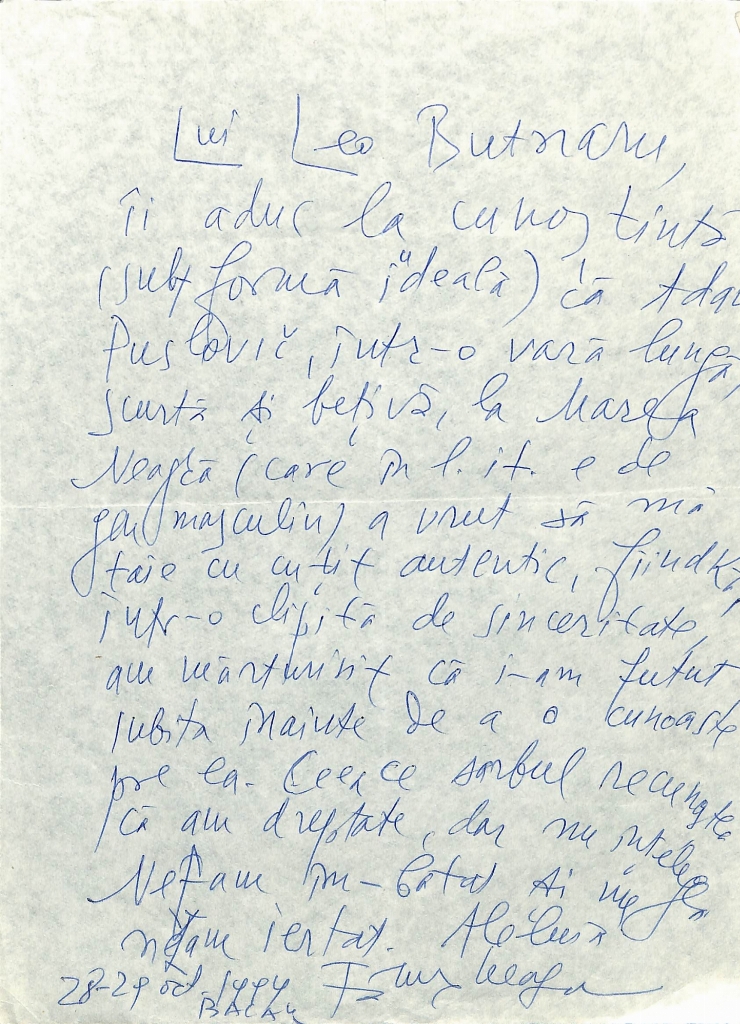 Lui Leo Butnaru,
îi aduc la cunoștință
(sub formă ideală) că Adam
Puslović, într-o vară lungă,
scurtă și bețivă, la Marea
Neagră (care în l. it. e de
gen masculin) a vrut să mă
taie cu cuțit autentic, fiindkă,
într-o clipită de sinceritate,
am mărturisit că i-am futut
iubita înainte de a o cunoaște
pre ea. Ceea ce sârbul recunoștea
că am dreptate, dar nu înțelegea
Ne-am îm-bătat și ne
ne-am iertat. Aleluia
28-29 oct. 1994
BACĂU